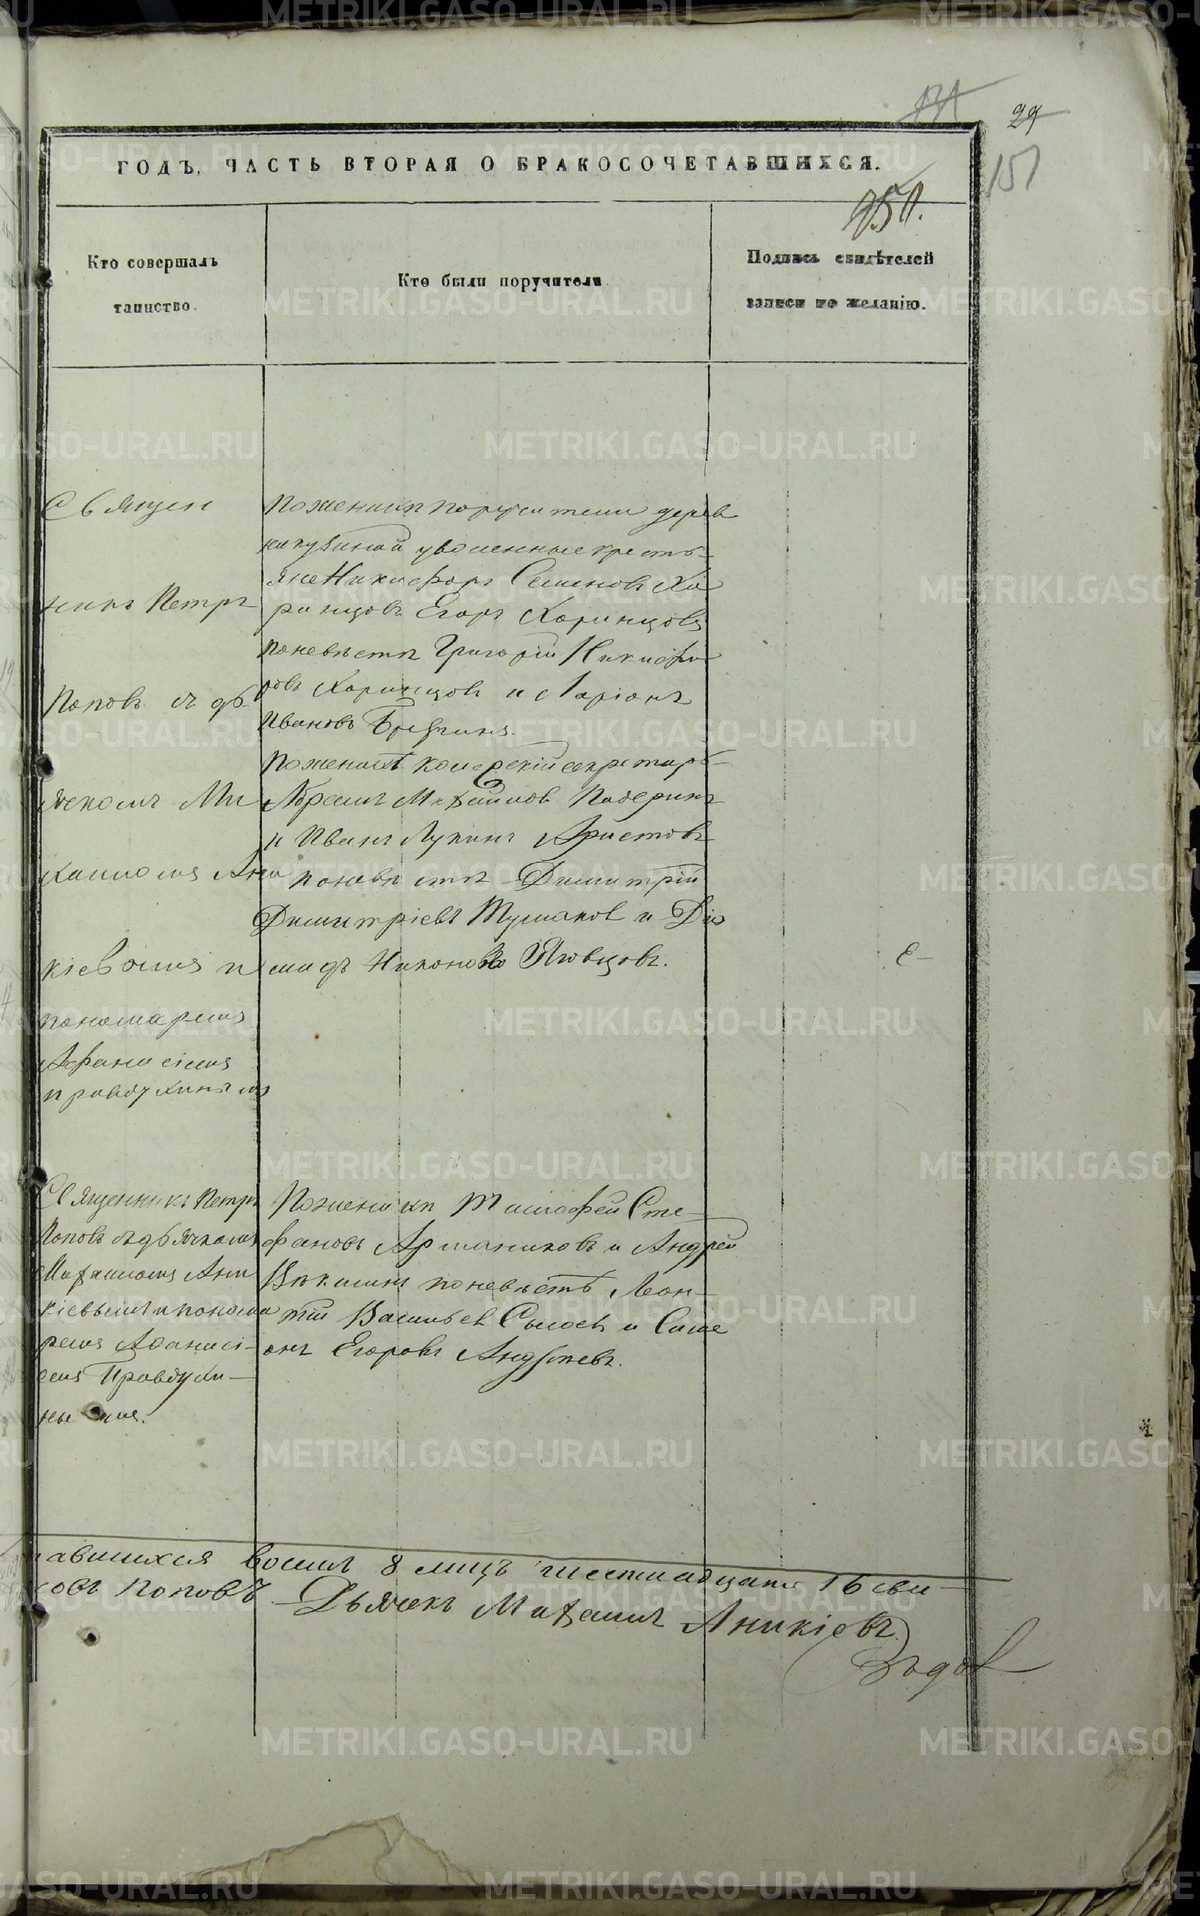 29
151
ГОДЪ, ЧАСТЬ ВТОРАЯ О БРАКОСОЧЕТАВШИХСЯ.
950.
Кто совершалъ
таинство.
Кто были поручители
Подпись свидѣтелей
записи по желанію.
Священ
никъ Петръ
Поповъ съ дь
ячкомъ Ми
хаиломъ Ани
кіевымъ и
пономаремъ
Афанасіемъ
Правдухинымъ
Поженихѣ поручители дерев
уволенные кресть-
яне Никифоръ Семеновъ Ха
ринцовъ Егоръ Харинцовъ
поневѣстѣ Григорій Никифо
ровъ Харинцовъ и Ларіонъ
Ивановъ
Поженихѣ колежскій секретарь
Абрамъ Михайловъ Падеринъ
и Иванъ Лукинъ Аристовъ
поневѣстѣ Димитрій
Димитріевъ Тушаков и Діо
мидъ Никоновъ Яговцовъ.
Священникъ Петръ
Поповъ съ дьячкомъ
Михаиломъ Ани
кіевымъ и понома
ремъ Афанасі-
емъ Правдухи-
нымъ.
Поженихѣ Тимофей Сте-
фановъ и Андрей
поневѣстѣ Леон-
тій Васильев Сысоев и Симе
онъ Егоровъ Андреевъ.
авшихся восемь 8 лицъ шестнадцать 16 свя-
ковъ Поповъ Дьячекъ Михаилъ Аникіевъ
METRIKI.GASO-URAL.RU